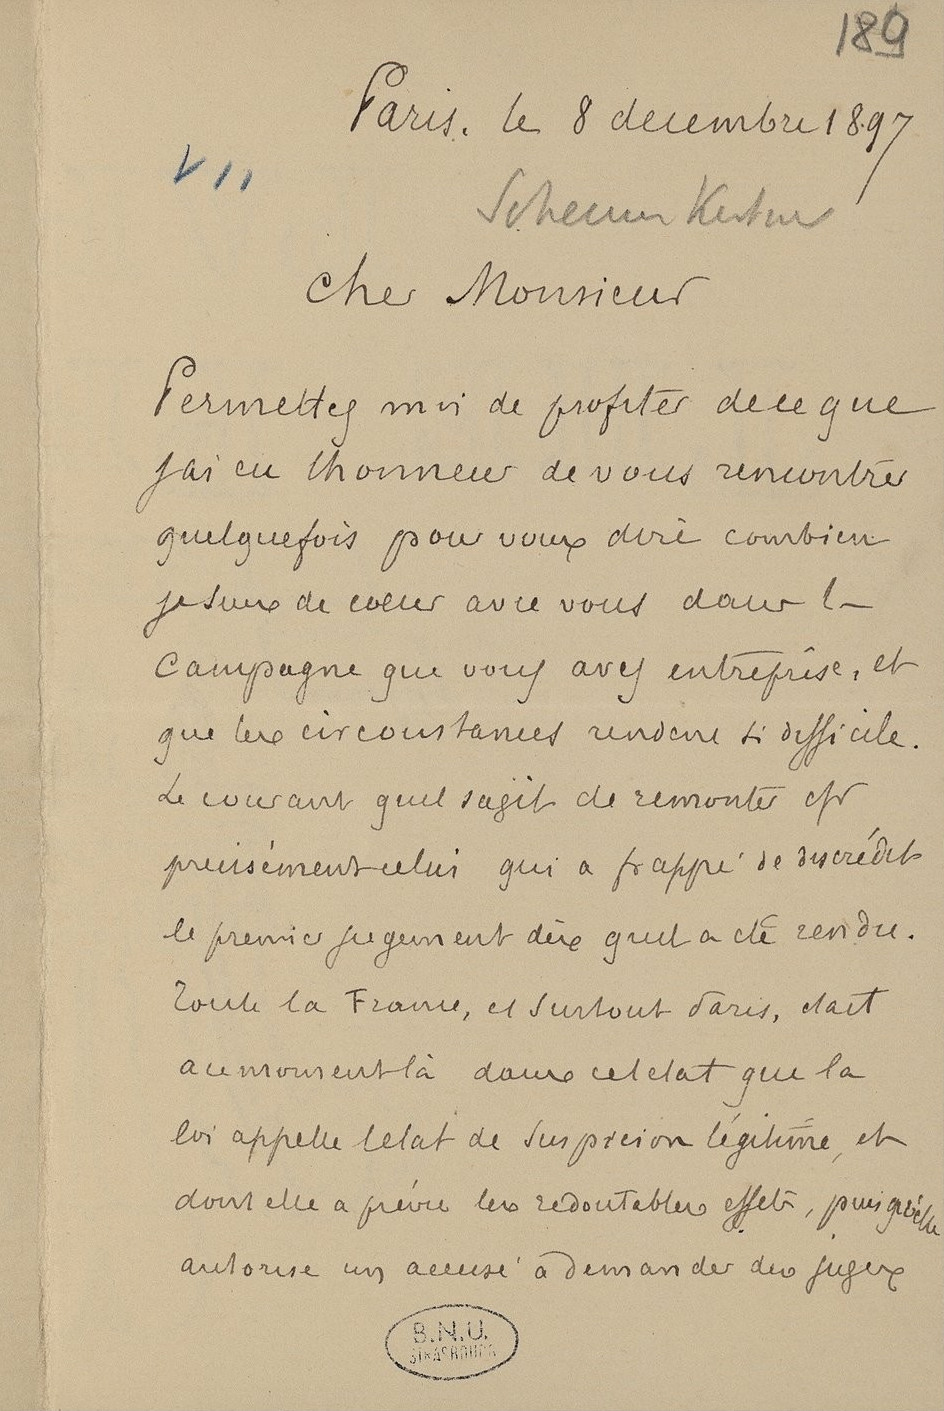 189
Paris. le 8 decembre 1897
VII
Scheurer Kestner
Cher Monsieur
Permettez moi de profiter de ce que
j'ai eu l'honneur de vous rencontrer
quelquefois pour vous dire combien
je suis de coeur avec vous dans la
campagne que vous avez entreprise, et
que les circonstances rendent si difficile.
Le courant qu'il s'agit de remonter est
precisément celui qui a frappé de discrédit
le premier jugement dès qu'il a été rendu.
Toute la France, et surtout Paris, etait
a ce moment là dans cet etat que la
loi appelle l'etat de suspicion légitime, et
dont elle a prévu les redoutables effets, puisqu'elle
autorise un accusé à demander des juges
B.N.U.
STRASBOURG